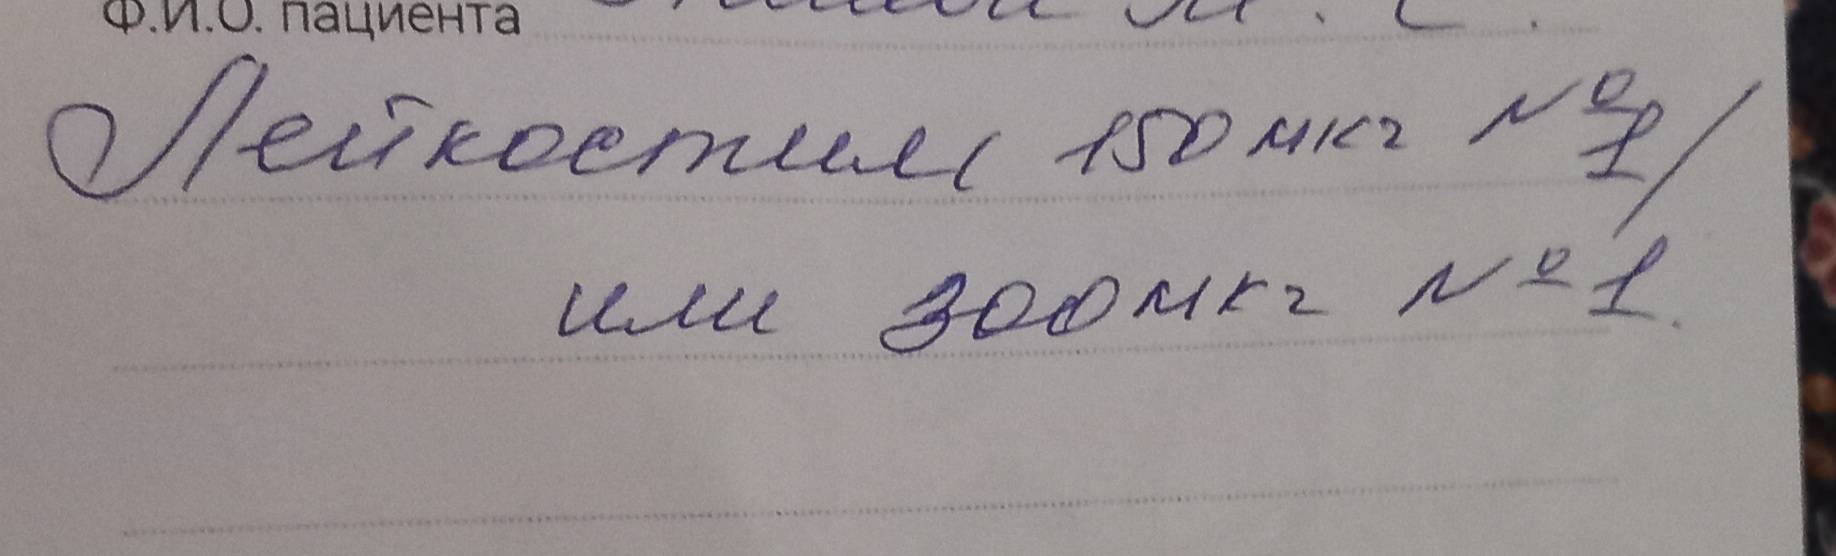 Ф.И.О. пациента
Лейкостим 150 мкг №1/
или 300 мкг №1.